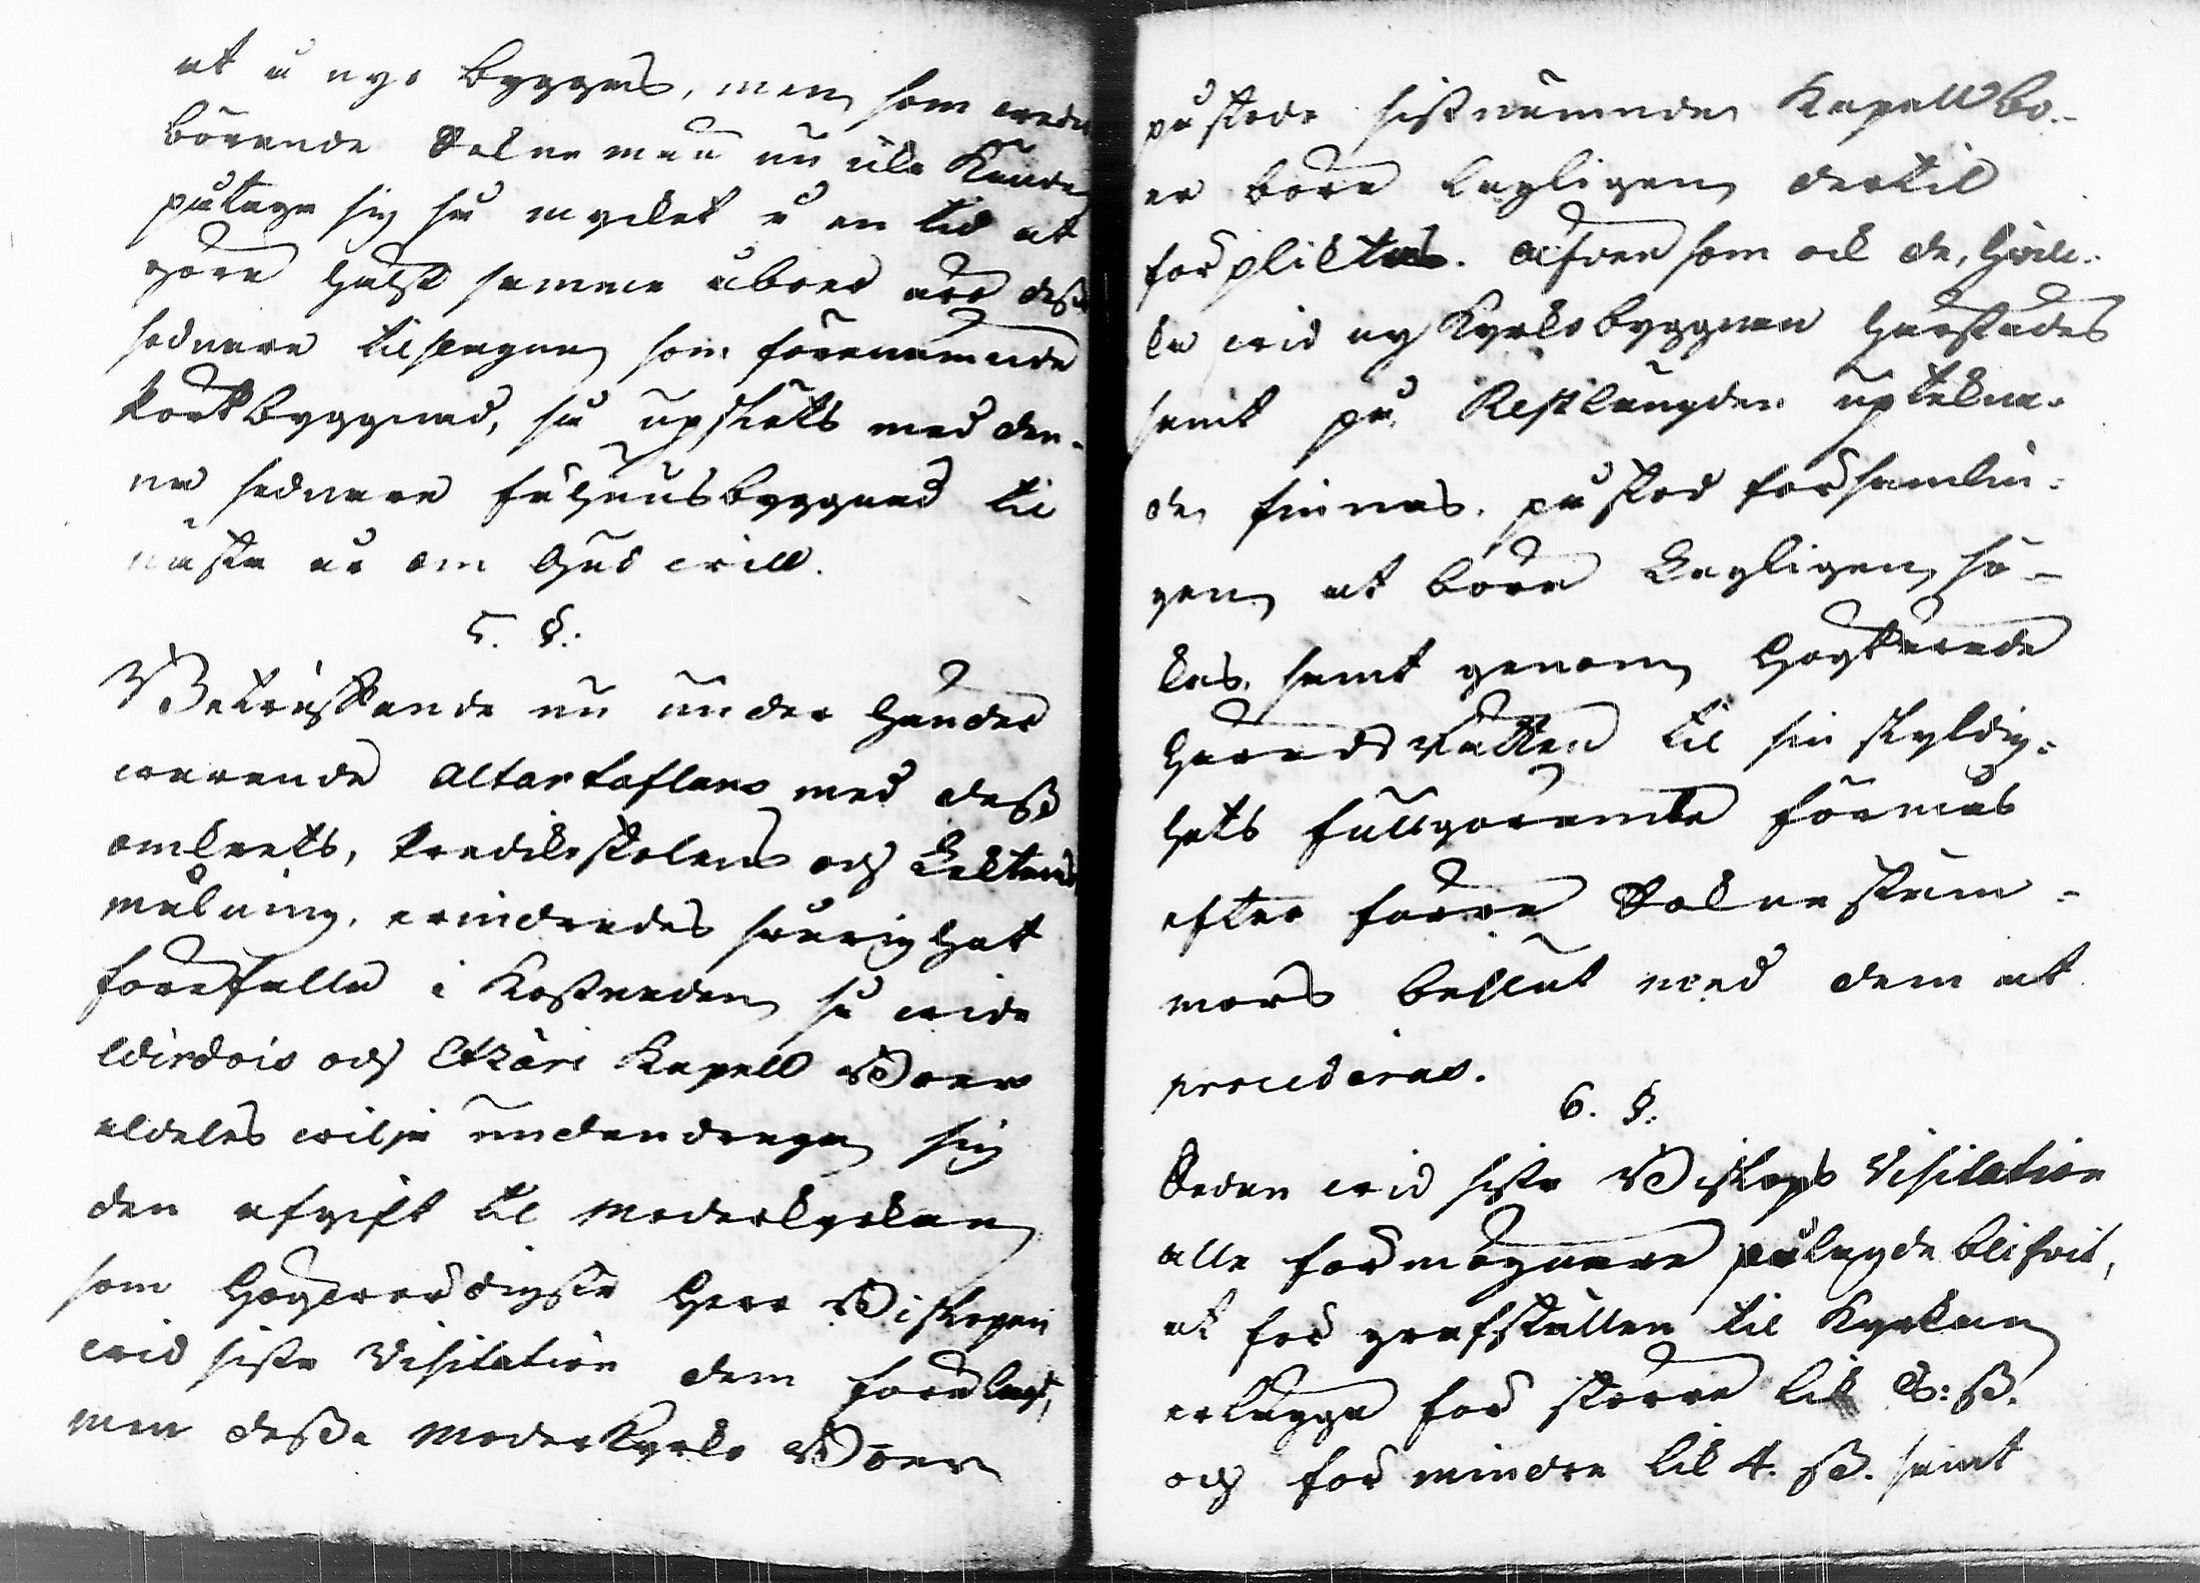 at å nyo byggas, men som wede
börande Sokne män nu icke kunde
påtaga sig så mycket å en tid at
göra hälst samma åboer äro desse
sednare tilsagne som förenämnde
Portbyggnad, så upskots med den-
na sednare fähus byggnad til
nästa år om Gud will.
5. §:
Beträffande nu under händer
warande Altartaflans med dess
omkrets, Predikstolens och Läktarens
målning, erindrades swårighet
förefalla i Kostnaden, så wida
Wirdois och Etzäri Kapell Boer
aldeles wilja undandraga sig
den afgift til Moderkyrkan
som Högwördigste Herr Biskopen
wid sista Visitation dem förelagt,
men dessa Moderkyrko Boer
påstode sistnämnde Kapellbo-
er böra lagligen dertil
förpliktas. Äfwen som ock de, hwil-
ka wid ny Kyrkobyggnan
samt på Restlängden uptekna-
de finnas, påstod församlin-
gen at böra Lagligen sö-
kas, samt genom Högtärade
Härads Rätten til sin skyldig-
hets fullgörande förmås
efter förra Sokne stäm-
mors beslut med dem at
procederas.
6. §:
Sedan wid sista Biskops Visitation
alle förmögnare pålagde blifwit,
at för grafställen til Kyrkan
erlägga för större lik 8: ß.
och för mindre lik 4. ß. samt